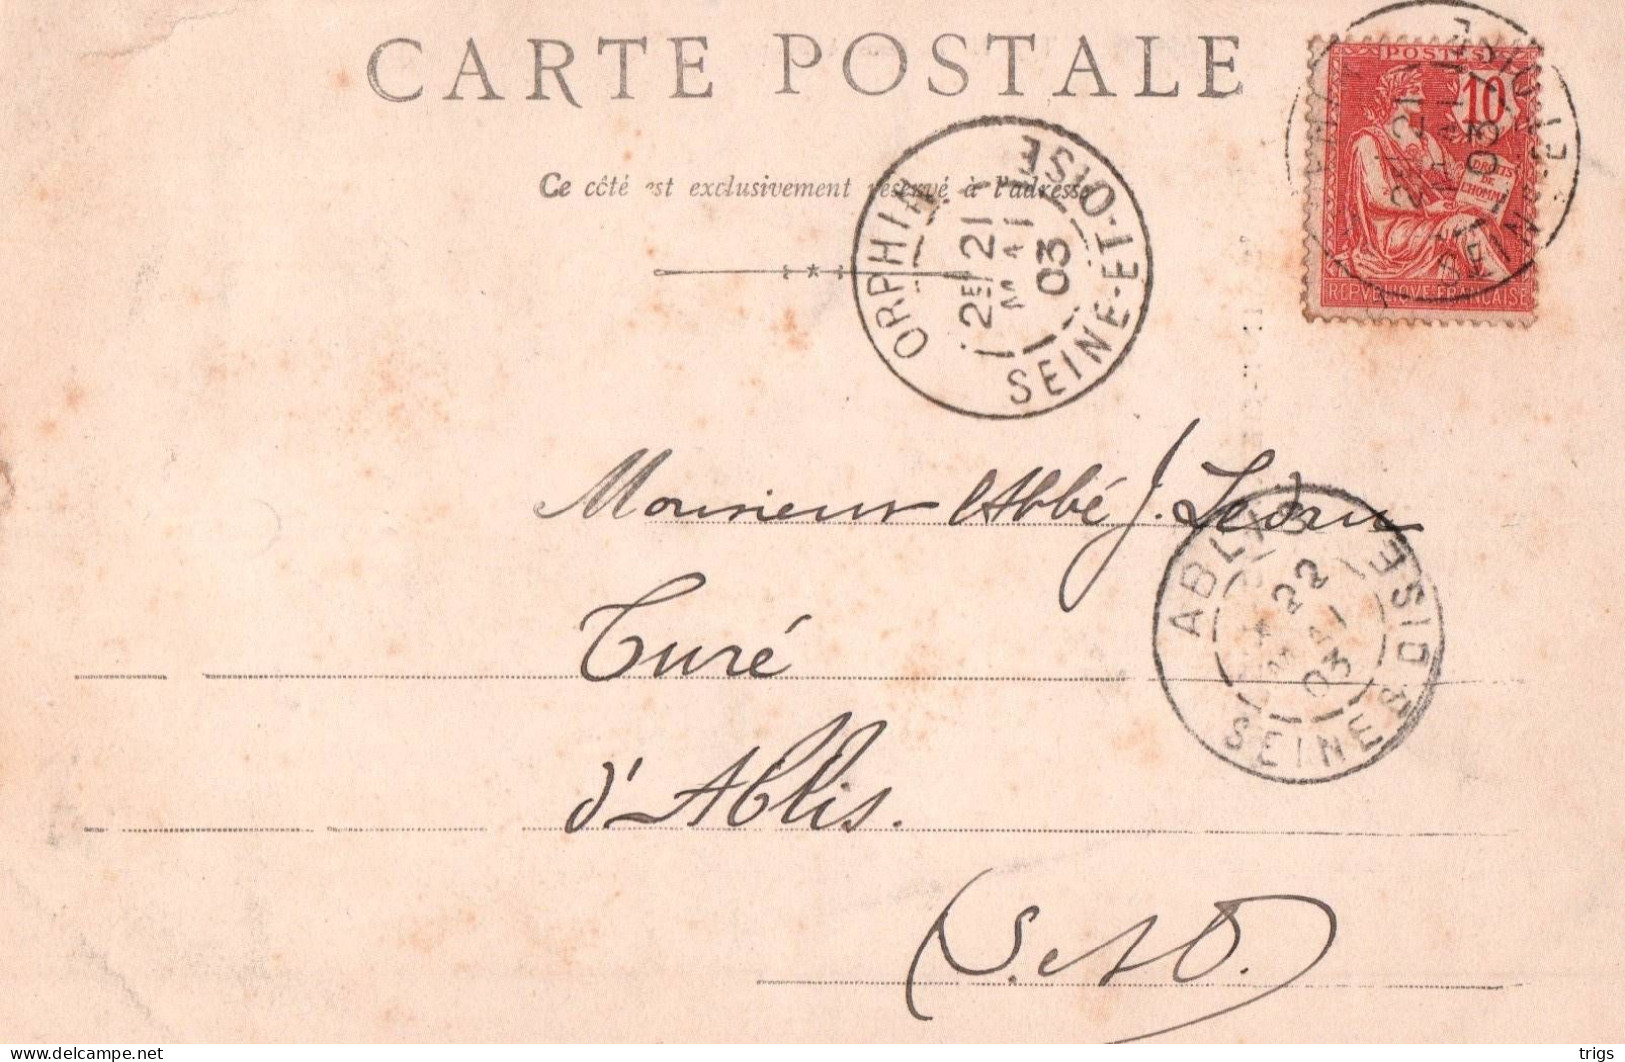 CARTE POSTALE
Ce côté est exclusivement réservé à l'adresse
POSTES
10
DROITS
DE
L'HOMME
REPVBLIQVE FRANÇAISE
21
MAI
03
SEINE-ET-OISE
ORPHIN
SEINE-ET-OISE
2E 21
MAI
03
Monsieur l'Abbé J. Ledru
Curé
d'Ablis.
(S. et O.)
ABLIS
SEINE & OISE
22
MAI
03
delcampe.net
trigs